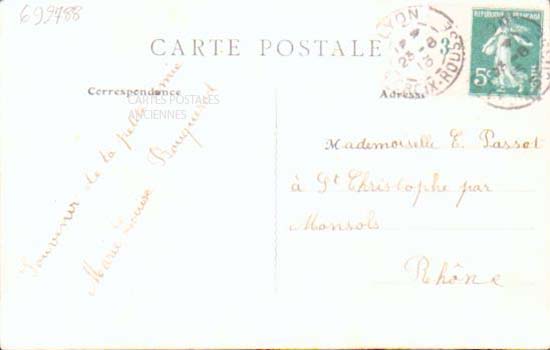 699488
CARTE POSTALE
Correspondance
Adresse
CARTES POSTALES
ANCIENNES
LYON
4 8
23 - 3
13
CROIX-ROUSSE
REPUBLIQUE FRANÇAISE
5c
Souvenir de ta petite amie
Marie Louise Bouquerel
Mademoiselle E. Passot
à St Christophe par
Monsols
Rhône